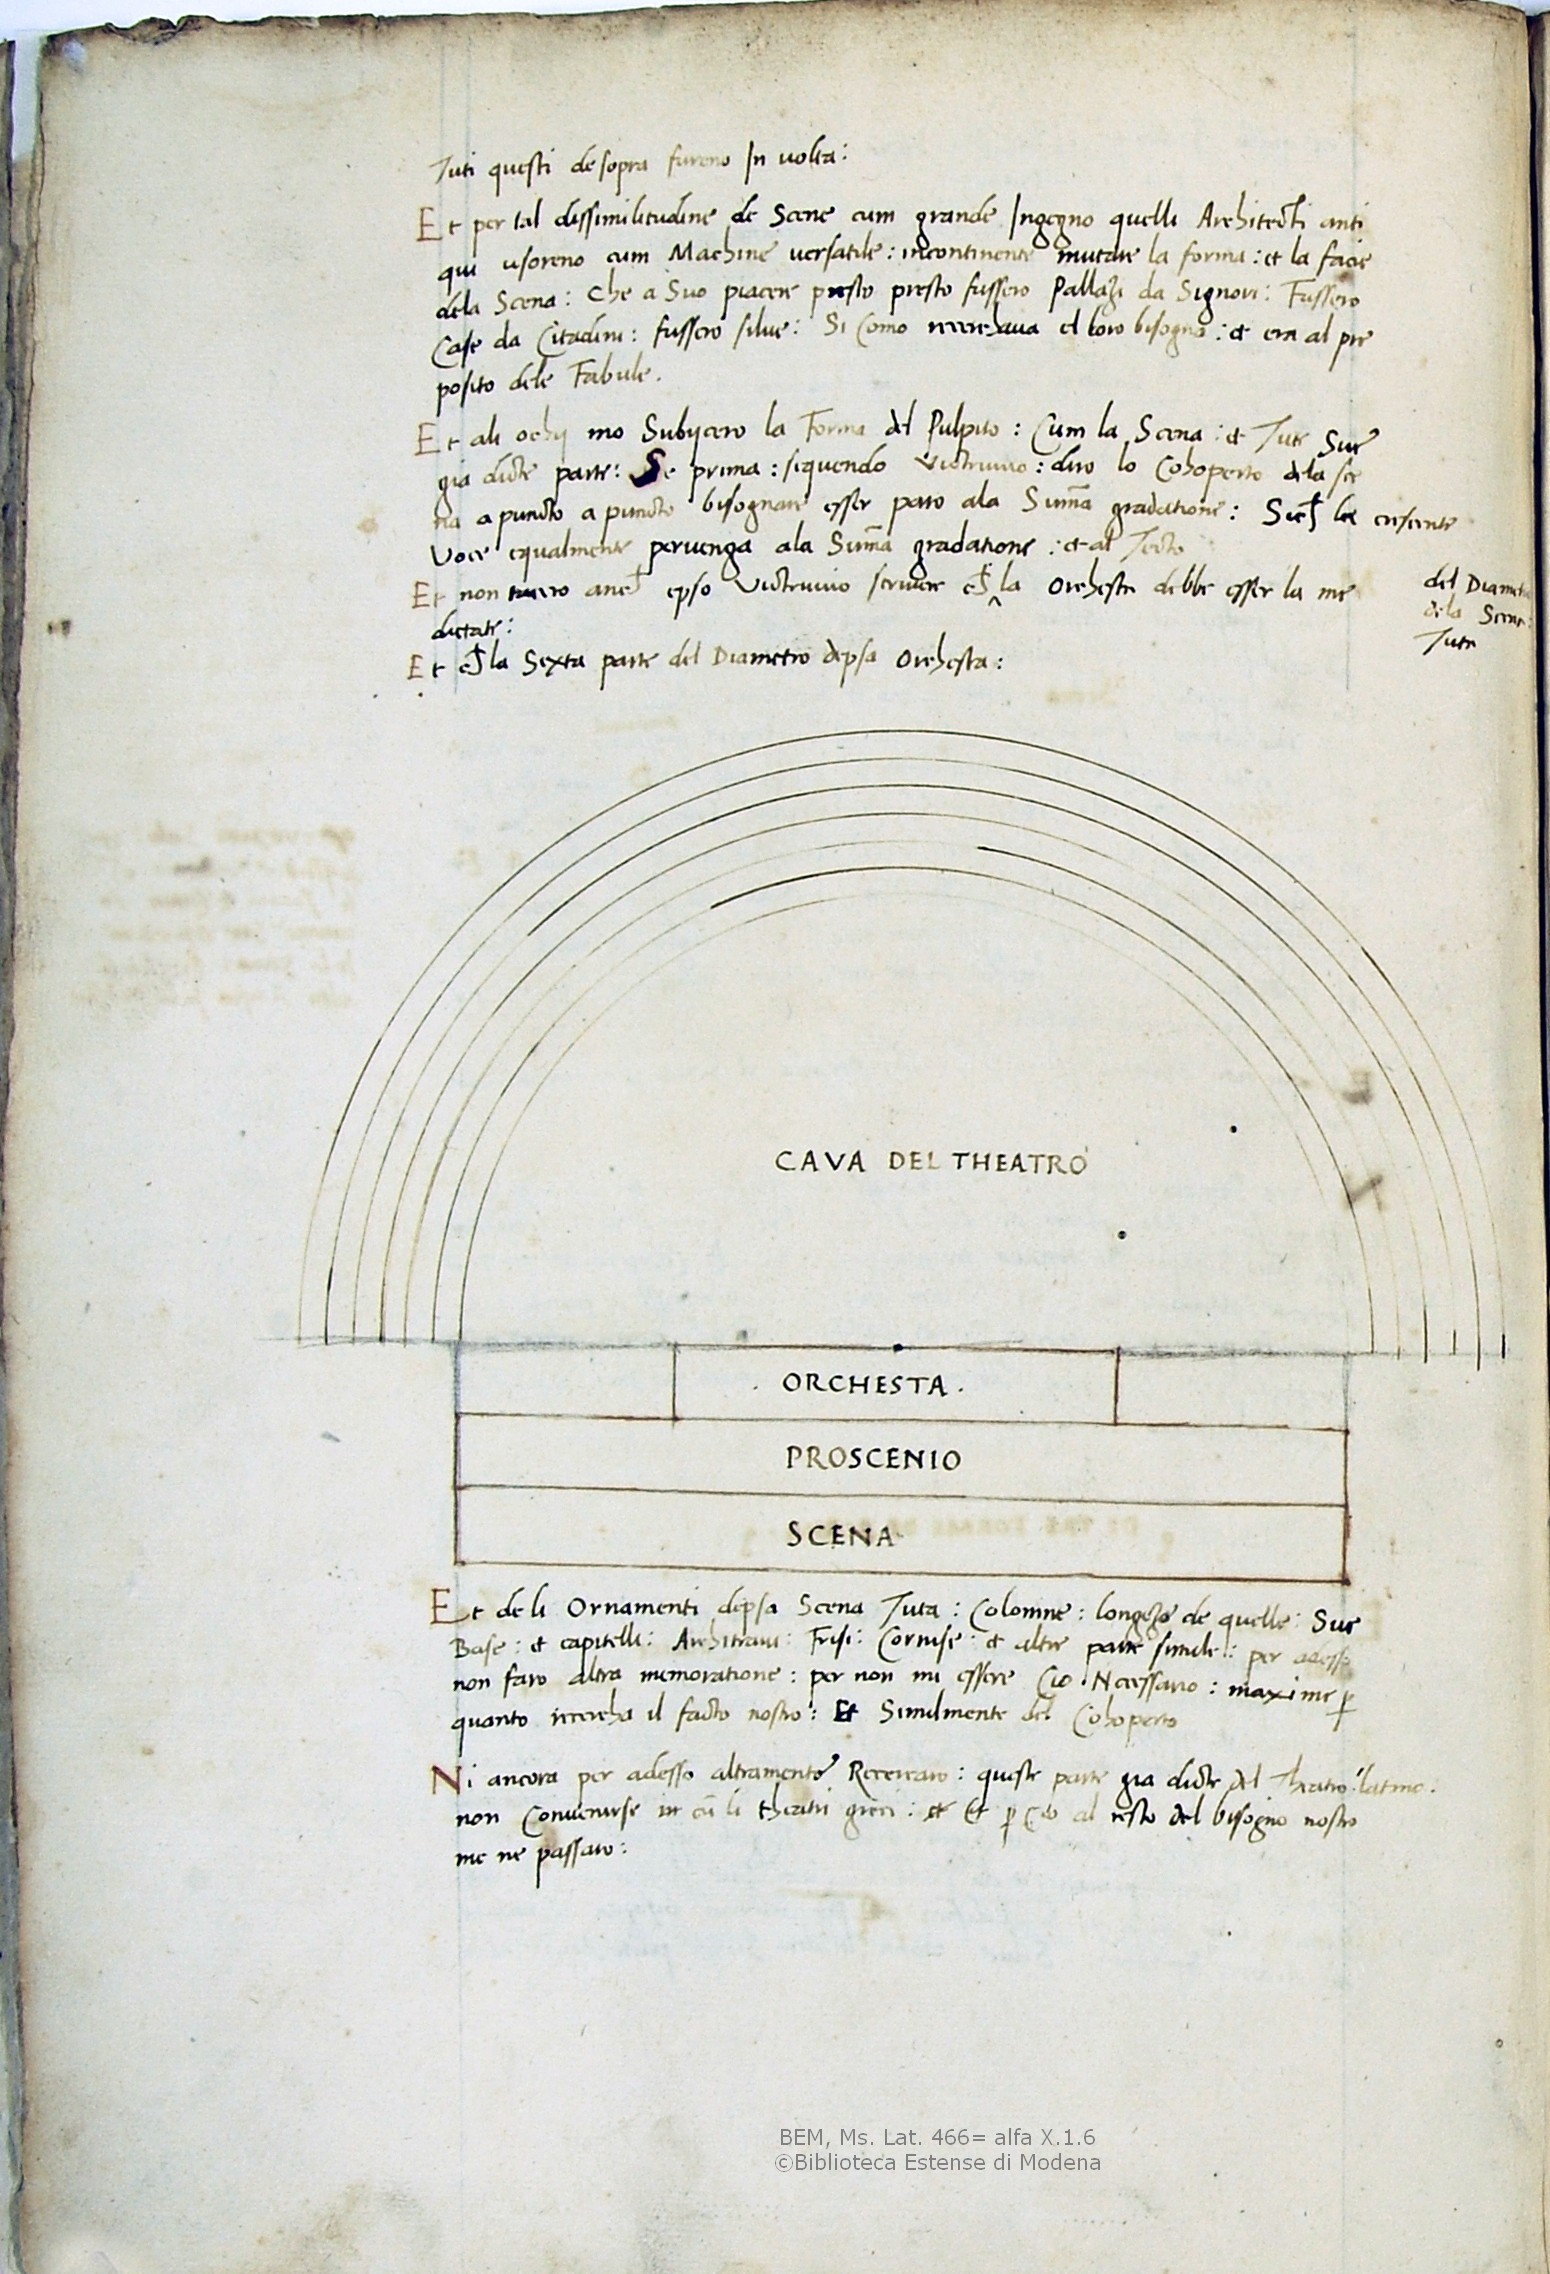 Tuti questi desopra fureno In uolta:
Et per tal dissimilitudine de Scene cum grande Ingegno quelli Architecti anti
qui usoreno cum Machine uersatile: incontinente mutare la forma: et la facie
dela Scena: Che a Suo piacere presto presto fussero Pallazi da Signori: Fussero
Case da Citadini: fussero silue: Si Como recerchaua el loro bisogno: et era al pre
posito dele Fabule.
Et ali ochij mo Subijcero la Forma del Pulpito: Cum la Scena: et Tute Sue
gia dicte parte: Se prima: sequendo Victruuio: diro lo Cohoperto dela sce
na a puncto a puncto bisognare esser paro ala Suma gradatione: crescente
Voce equalmente peruenga ala Suma gradatione: et al Tecto
Et non epso Victruuio scriuere la Orchestra debbe esser la me
dietate:
del Diametro
dela Scena:
Tuta
Et la Sexta parte del Diametro depsa Orchesta:
CAVA DEL THEATRO
. ORCHESTA .
PROSCENIO
SCENA
Et de li Ornamenti depsa Scena Tuta: Colomne: longeze de quelle: Sue
Base: et capitelli: Architraui: Frisi: Cornise: et altre parte simile: per adesso
non faro altra memoratione: per non mi essere Cio Necessario: maxime p
quanto recercha il facto nostro: Et Similmente del Cohoperto
Ni ancora per adesso altramente Recercaro: queste parte gia dicte del Theatro latino.
non Conuenirse cu li theatri greci: et p Cio al resto del bisogno nostro
me ne passaro:
BEM, Ms. Lat. 466= alfa X.1.6
©Biblioteca Estense di Modena